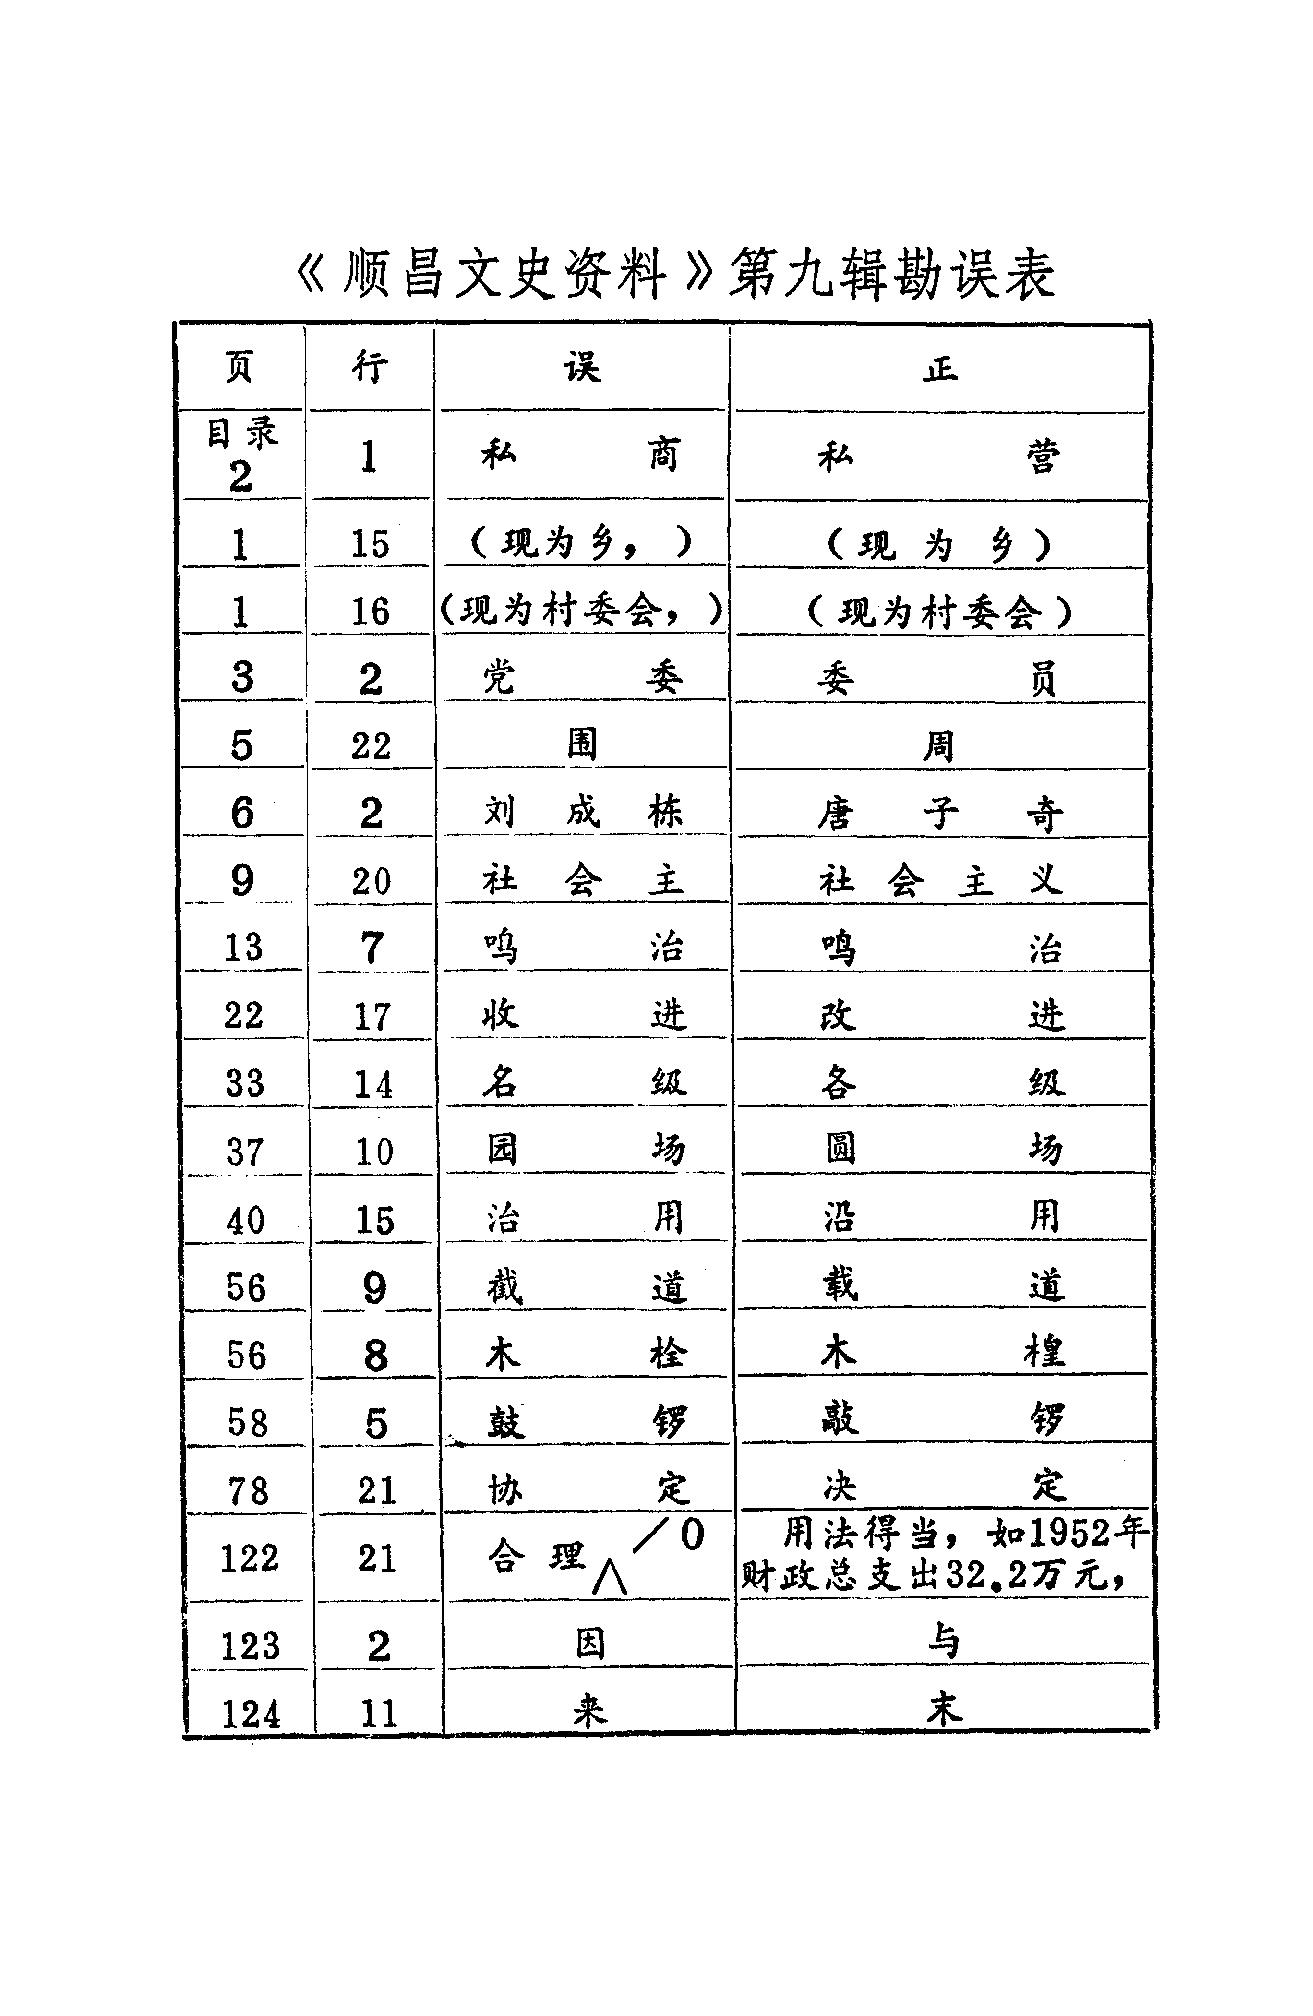 《顺昌文史资料》第九辑勘误表
页 行 误 正
目录2 1 私商 私营
1 15 (现为乡,) (现为乡)
1 16 (现为村委会,) (现为村委会)
3 2 党委 委员
5 22 围 周
6 2 刘成栋 唐子奇
9 20 社会主 社会主义
13 7 呜治 鸣治
22 17 收进 改进
33 14 名级 各级
37 10 园场 圆场
40 15 治用 沿用
56 9 截道 载道
56 8 木栓 木楻
58 5 鼓锣 敲锣
78 21 协定 决定
122 21 合理∧/0 用法得当,如1952年
财政总支出32.2万元,
123 2 因 与
124 11 来 末